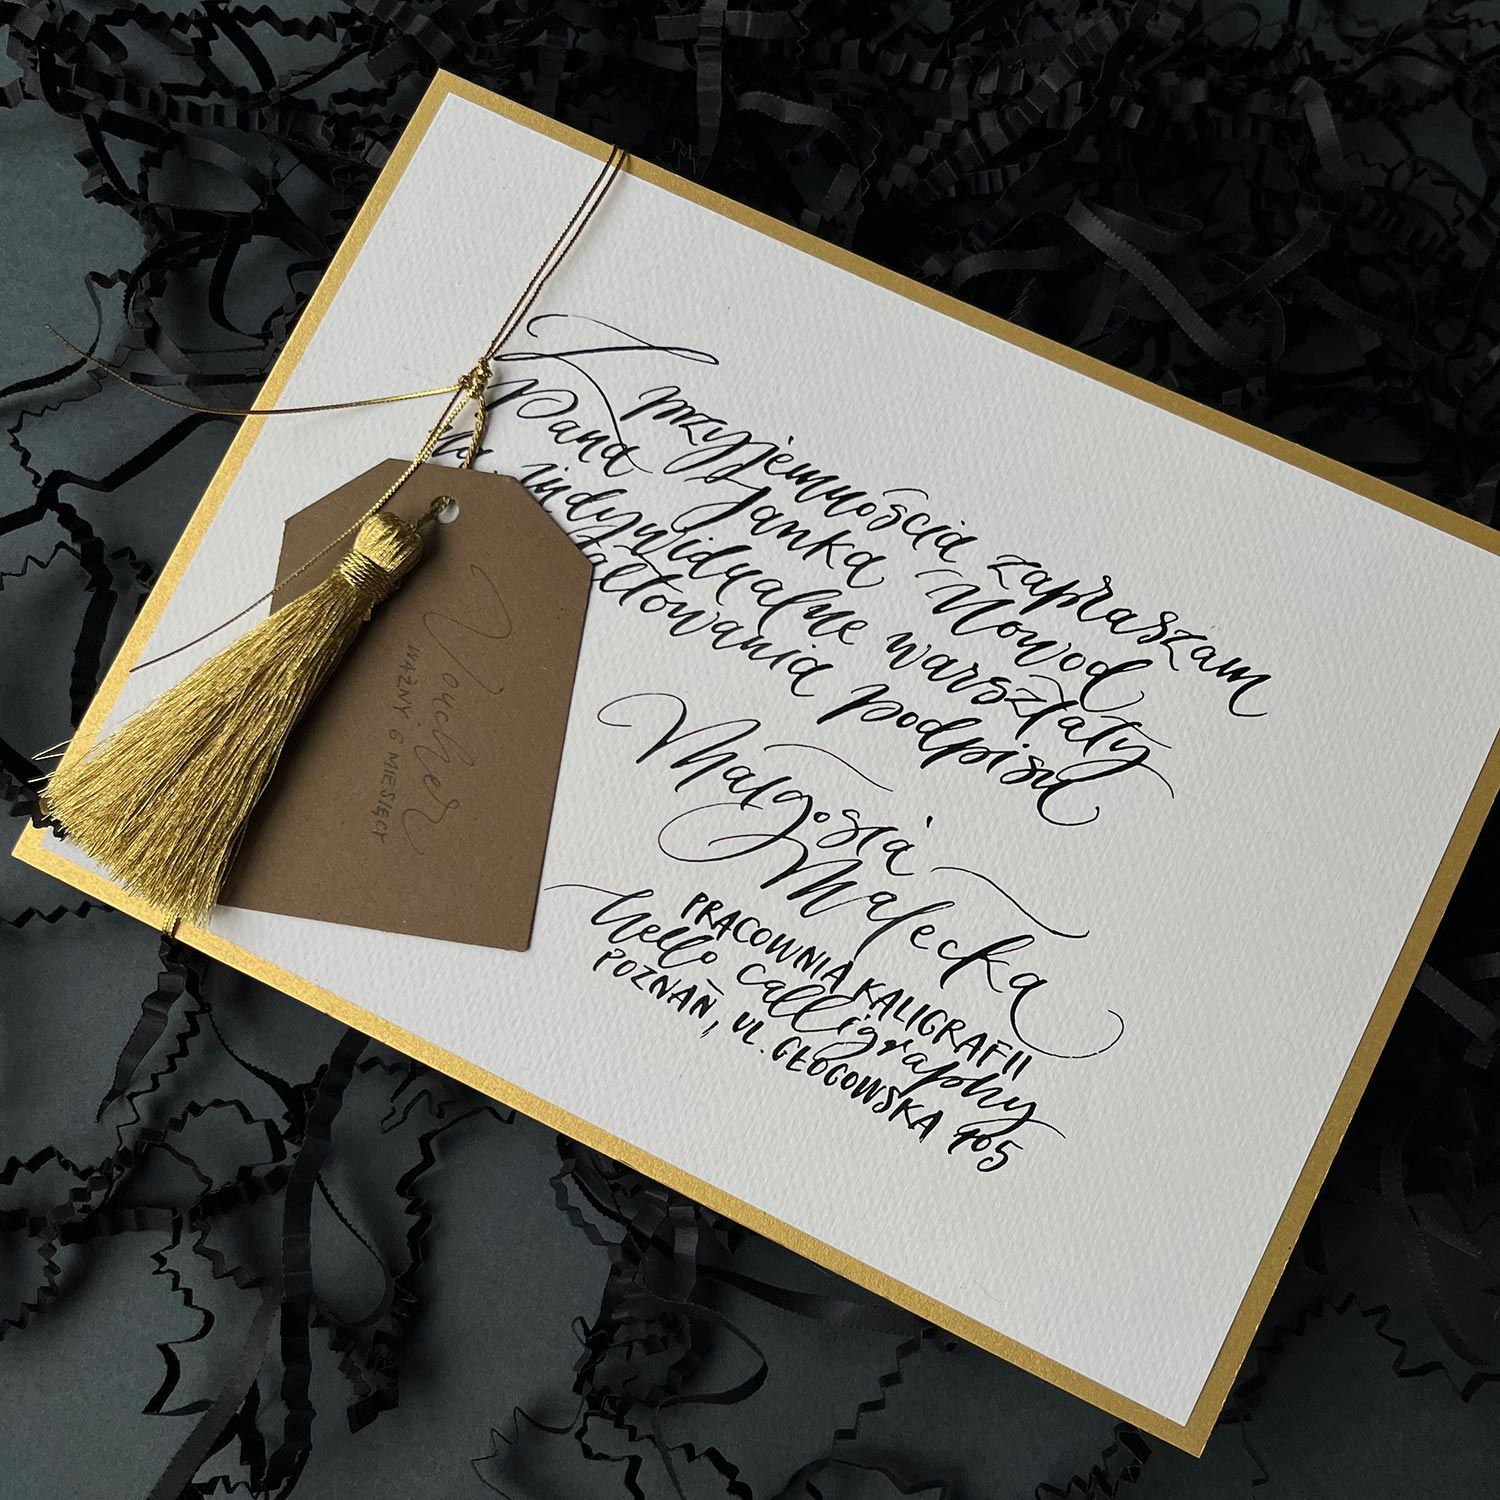 Z przyjemnością zapraszam
Pana Janka Nowod
na indywidualne warsztaty
podpisu
Małgosia
Małecka
PRACOWNIA KALIGRAFII
hello calligraphy
POZNAŃ, UL. GŁOGOWSKA 105
Voucher
WAŻNY 6 MIESIĘCY